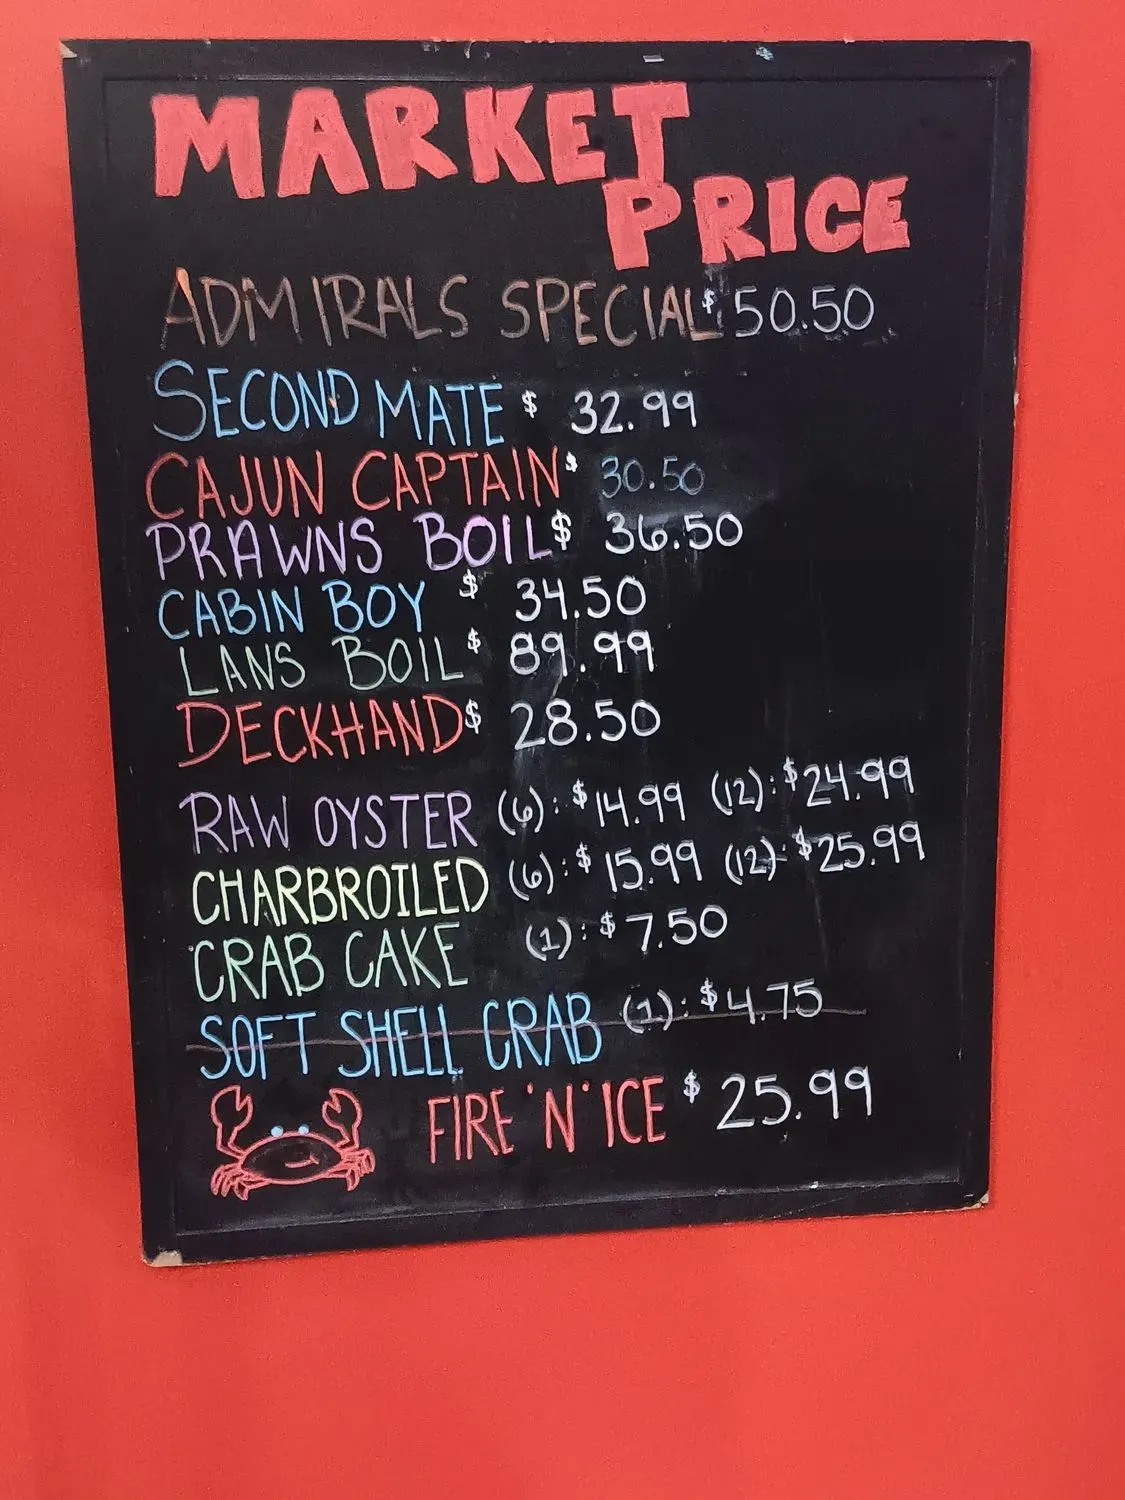 MARKET
PRICE
ADMIRALS SPECIAL $ 50.50
SECOND MATE $ 32.99
CAJUN CAPTAIN $ 30.50
PRAWNS BOIL $ 36.50
CABIN BOY $ 34.50
LANS BOIL $ 89.99
DECKHAND $ 28.50
RAW OYSTER (6): $14.99 (12): $24.99
CHARBROILED (6): $15.99 (12): $25.99
CRAB CAKE (1): $7.50
SOFT SHELL CRAB (1): $4.75
FIRE 'N' ICE $ 25.99